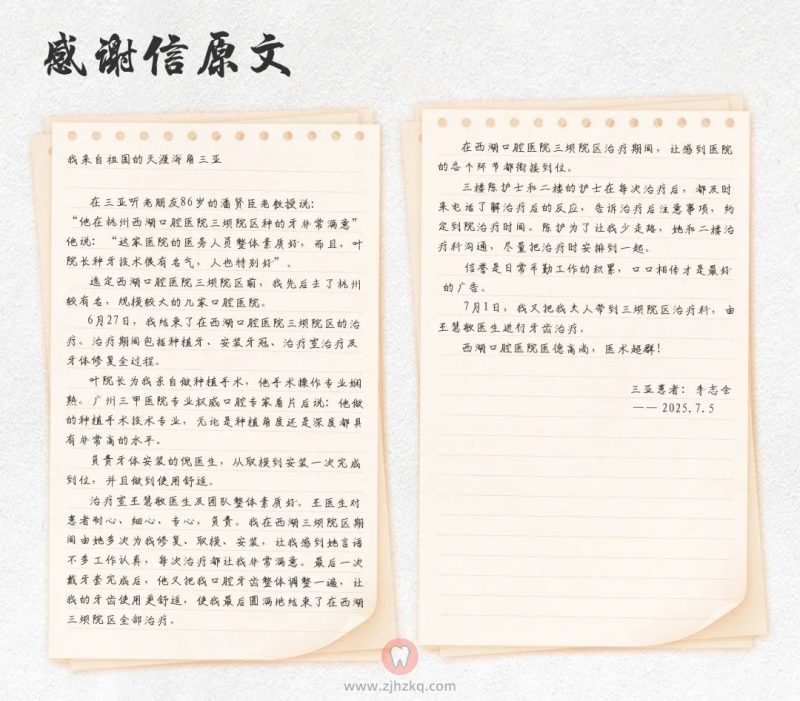 感谢信原文
我来自祖国的天涯海角三亚
在三亚听老朋友86岁的潘贤臣老教授说：
“他在杭州西湖口腔医院三坝院区种的牙非常满意”
他说：“这家医院的医务人员整体素质好，而且，叶
院长种牙技术很有名气，人也特别好”。
选定西湖口腔医院三坝院区前，我先后去了杭州
较有名，规模较大的几家口腔医院。
6月27日，我结束了在西湖口腔医院三坝院区的治
疗。治疗期间包括种植牙、安装牙冠、治疗室治疗及
牙体修复全过程。
叶院长为我亲自做种植手术，他手术操作专业娴
熟。广州三甲医院专业权威口腔专家看片后说：他做
的种植手术技术专业，无论是种植角度还是深度都具
有非常高的水平。
负责牙体安装的倪医生，从取模到安装一次完成
到位，并且做到使用舒适。
治疗室王慧敏医生及团队整体素质好。王医生对
患者耐心、细心、专心，负责。我在西湖三坝院区期
间由她多次为我修复、取模、安装，让我感到她言语
不多工作认真，每次治疗都让我非常满意。最后一次
戴牙套完成后，他又把我口腔牙齿整体调整一遍，让
我的牙齿使用更舒适，使我最后圆满地结束了在西湖
三坝院区全部治疗。
在西湖口腔医院三坝院区治疗期间，让感到医院
的各个环节都衔接到位。
三楼陈护士和二楼的护士在每次治疗后，都及时
来电话了解治疗后的反应，告诉治疗后注意事项，约
定到院治疗时间。陈护为了让我少走路，她和二楼治
疗科沟通，尽量把治疗时安排到一起。
信誉是日常辛勤工作的积累，口口相传才是最好
的广告。
7月1日，我又把我夫人带到三坝院区治疗科，由
王慧敏医生进行牙齿治疗。
西湖口腔医院医德高尚，医术超群！
三亚患者：李志会
——2025.7.5
www.zjhzkq.com